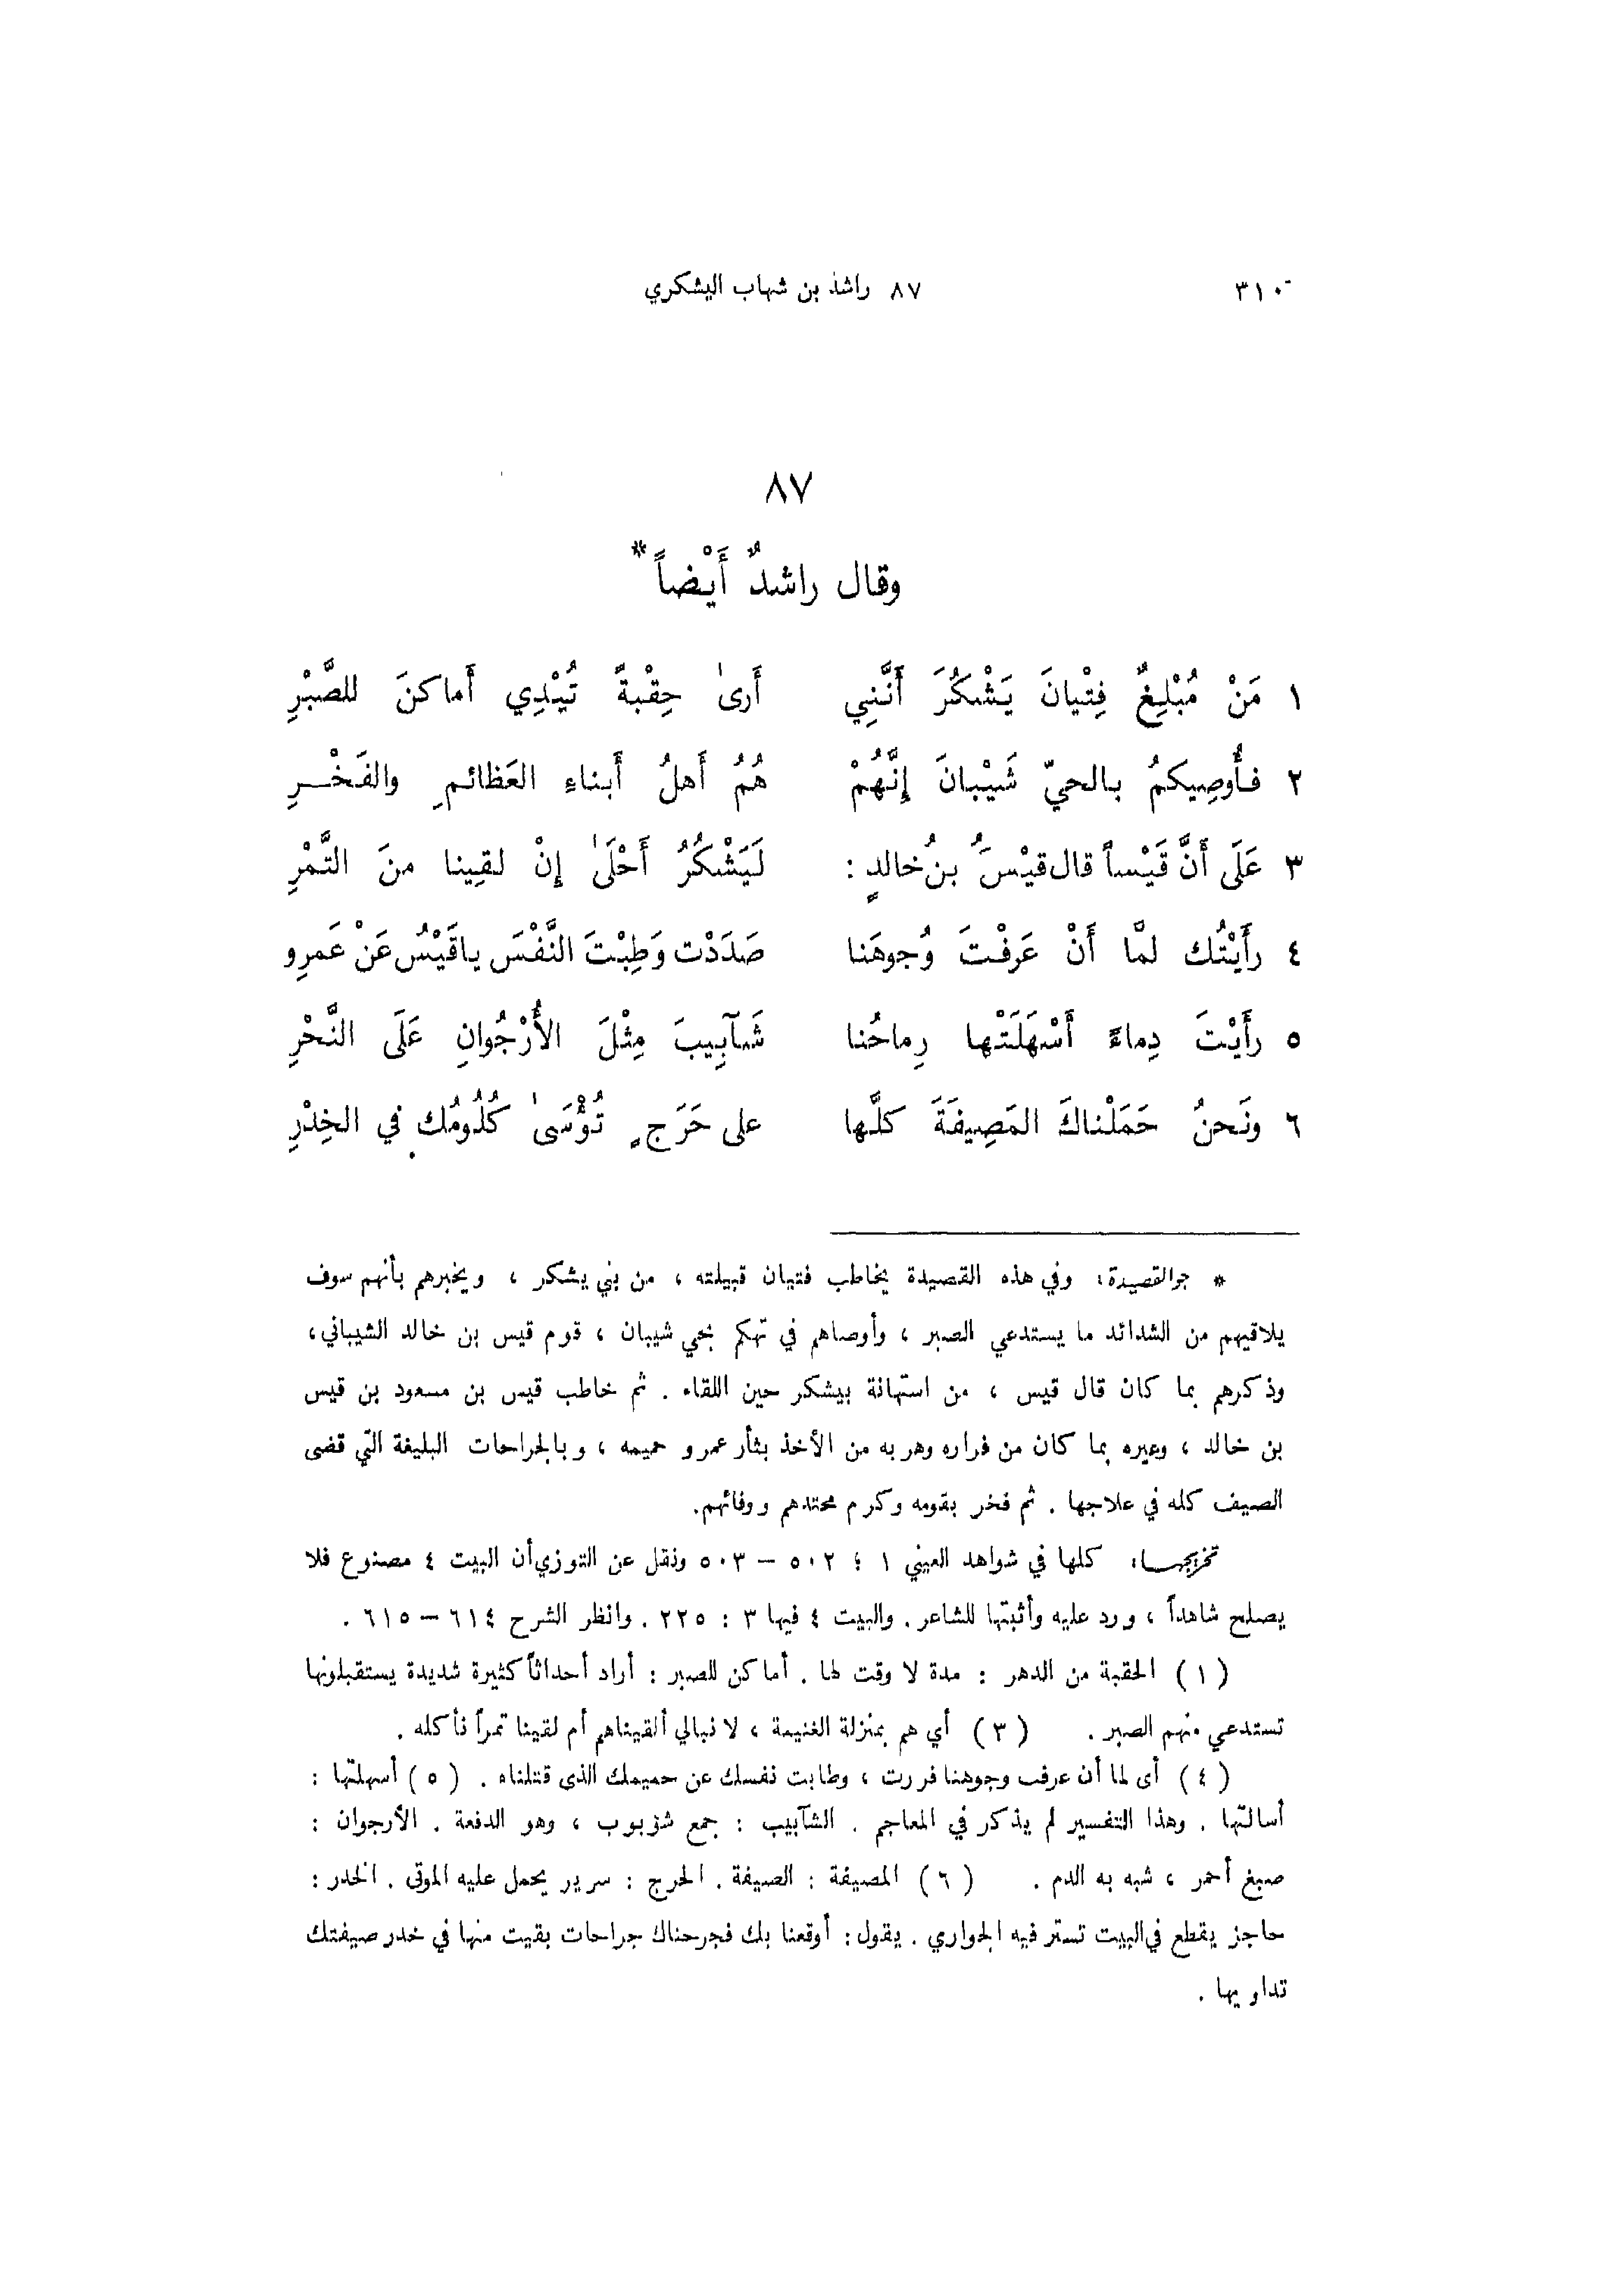 ٣١٠ ٨٧ راشد بن شهاب اليشكري
٨٧
وقال راشدٌ أَيْضاً*
١ مَنْ مُبْلِغٌ فِتْيانَ يَشْكُرَ أَنَّنِي أَرىٰ حِقْبةً تُبْدِي أَماكنَ للصَّبْرِ
٢ فأُوصِيكمُ بالحيّ شَيْبانَ إِنَّهُمْ هُمُ أَهلُ أَبناءِ العَظائمِ والفَخْرِ
٣ عَلَى أَنَّ قَيْساً قال قيْسَُ بنُ خالدٍ : لَيَشْكُرُ أَحْلَىٰ إِنْ لقِينا منَ التَّمْرِ
٤ رأَيْتُك لمَّا أَنْ عَرفْتَ وُجوهَنا صَدَدْت وَطِبْتَ النَّفْسَ ياقَيْسُ عَنْ عَمرِو
٥ رأَيْتَ دِماءً أَسْهَلَتْها رِماحُنا شَآبِيبَ مِثْلَ الأُرْجُوانِ عَلَى النَّحْرِ
٦ ونَحنُ حَمَلْناكَ المَصِيفَةَ كلَّها على حَرَجٍ تُؤْسَىٰ كُلُومُك في الخِدْرِ
* جوالقصيدة: وفي هذه القصيدة يخاطب فتيان قبيلته ، من بني يشكر ، ويخبرهم بأنهم سوف
يلاقيهم من الشدائد ما يستدعي الصبر ، وأوصاهم في تهكم بحي شيبان ، قوم قيس بن خالد الشيباني،
وذكرهم بما كان قال قيس ، من استهانة بيشكر حين اللقاء . ثم خاطب قيس بن مسعود بن قيس
بن خالد ، وعيره بما كان من فراره وهربه من الأخذ بثأر عمرو حميمه ، وبالجراحات البليغة التي قضى
الصيف كله في علاجها . ثم فخر بقومه وكرم محتدهم ووفائهم.
تخريجها: كلها في شواهد العيني ١ : ٥٠٢ – ٥٠٣ ونقل عن التوزي أن البيت ٤ مصنوع فلا
يصلح شاهداً ، ورد عليه وأثبتها للشاعر. والبيت ٤ فيها ٣ : ٢٢٥ . وانظر الشرح ٦١٤ – ٦١٥ .
(١) الحقبة من الدهر : مدة لا وقت لها . أماكن للصبر : أراد أحداثاً كثيرة شديدة يستقبلونها
تستدعي منهم الصبر . (٣) أي هم بمنزلة الغنيمة ، لا نبالي ألقيناهم أم لقينا تمراً نأكله .
(٤) أى لما أن عرفت وجوهنا فررت ، وطابت نفسك عن حميمك الذى قتلناه . (٥) أسهلتها :
أسالتها . وهذا التفسير لم يذكر في المعاجم . الشآبيب : جمع شؤبوب ، وهو الدفعة . الأرجوان :
صبغ أحمر ، شبه به الدم . (٦) المصيفة : الصيفة . الحرج : سرير يحمل عليه الموتى . الخدر :
حاجز يقطع في البيت تستتر فيه الجواري . يقول : أوقعنا بك فجرحناك جراحات بقيت منها في خدر صيفتك
تداويها .